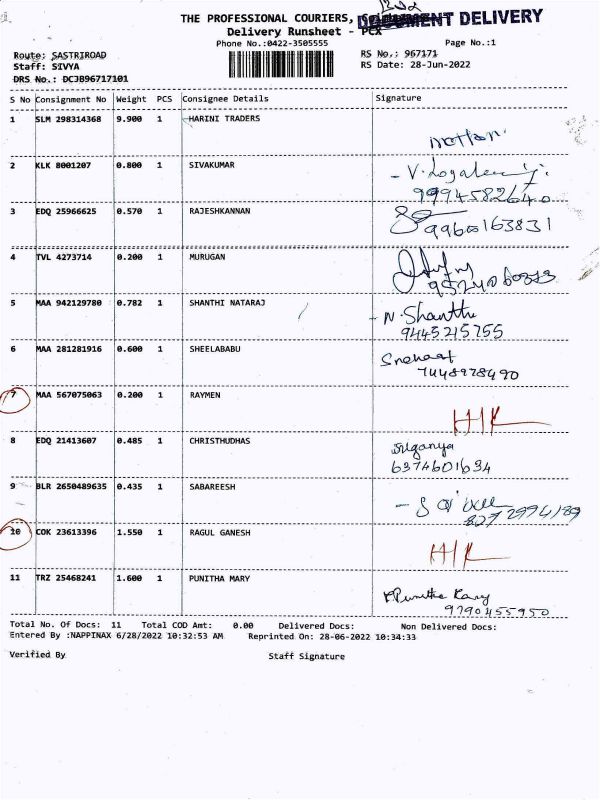 THE PROFESSIONAL COURIERS,
DOCUMENT DELIVERY
Delivery Runsheet - PCX
Phone No.:0422-3505555
Page No.:1
Route: SASTRIROAD
RS No.: 967171
Staff: SIVYA
RS Date: 28-Jun-2022
DRS No.: DCJB96717101
S No Consignment No Weight PCS Consignee Details Signature
1 SLM 298314368 9.900 1 HARINI TRADERS
2 KLK 8001207 0.800 1 SIVAKUMAR
9994582640
3 EDQ 25966625 0.570 1 RAJESHKANNAN
9960163831
4 TVL 4273714 0.200 1 MURUGAN
5 MAA 942129780 0.782 1 SHANTHI NATARAJ
- N. Shanthi
9445215755
6 MAA 281281916 0.600 1 SHEELABABU
7448978490
7 MAA 567075063 0.200 1 RAYMEN
8 EDQ 21413607 0.485 1 CHRISTHUDHAS
6374601634
9 BLR 2650489635 0.435 1 SABAREESH
10 COK 23613396 1.550 1 RAGUL GANESH
11 TRZ 25468241 1.600 1 PUNITHA MARY
9790455950
Total No. Of Docs: 11 Total COD Amt: 0.00 Delivered Docs: Non Delivered Docs:
Entered By :NAPPINAX 6/28/2022 10:32:53 AM Reprinted On: 28-06-2022 10:34:33
Verified By Staff Signature